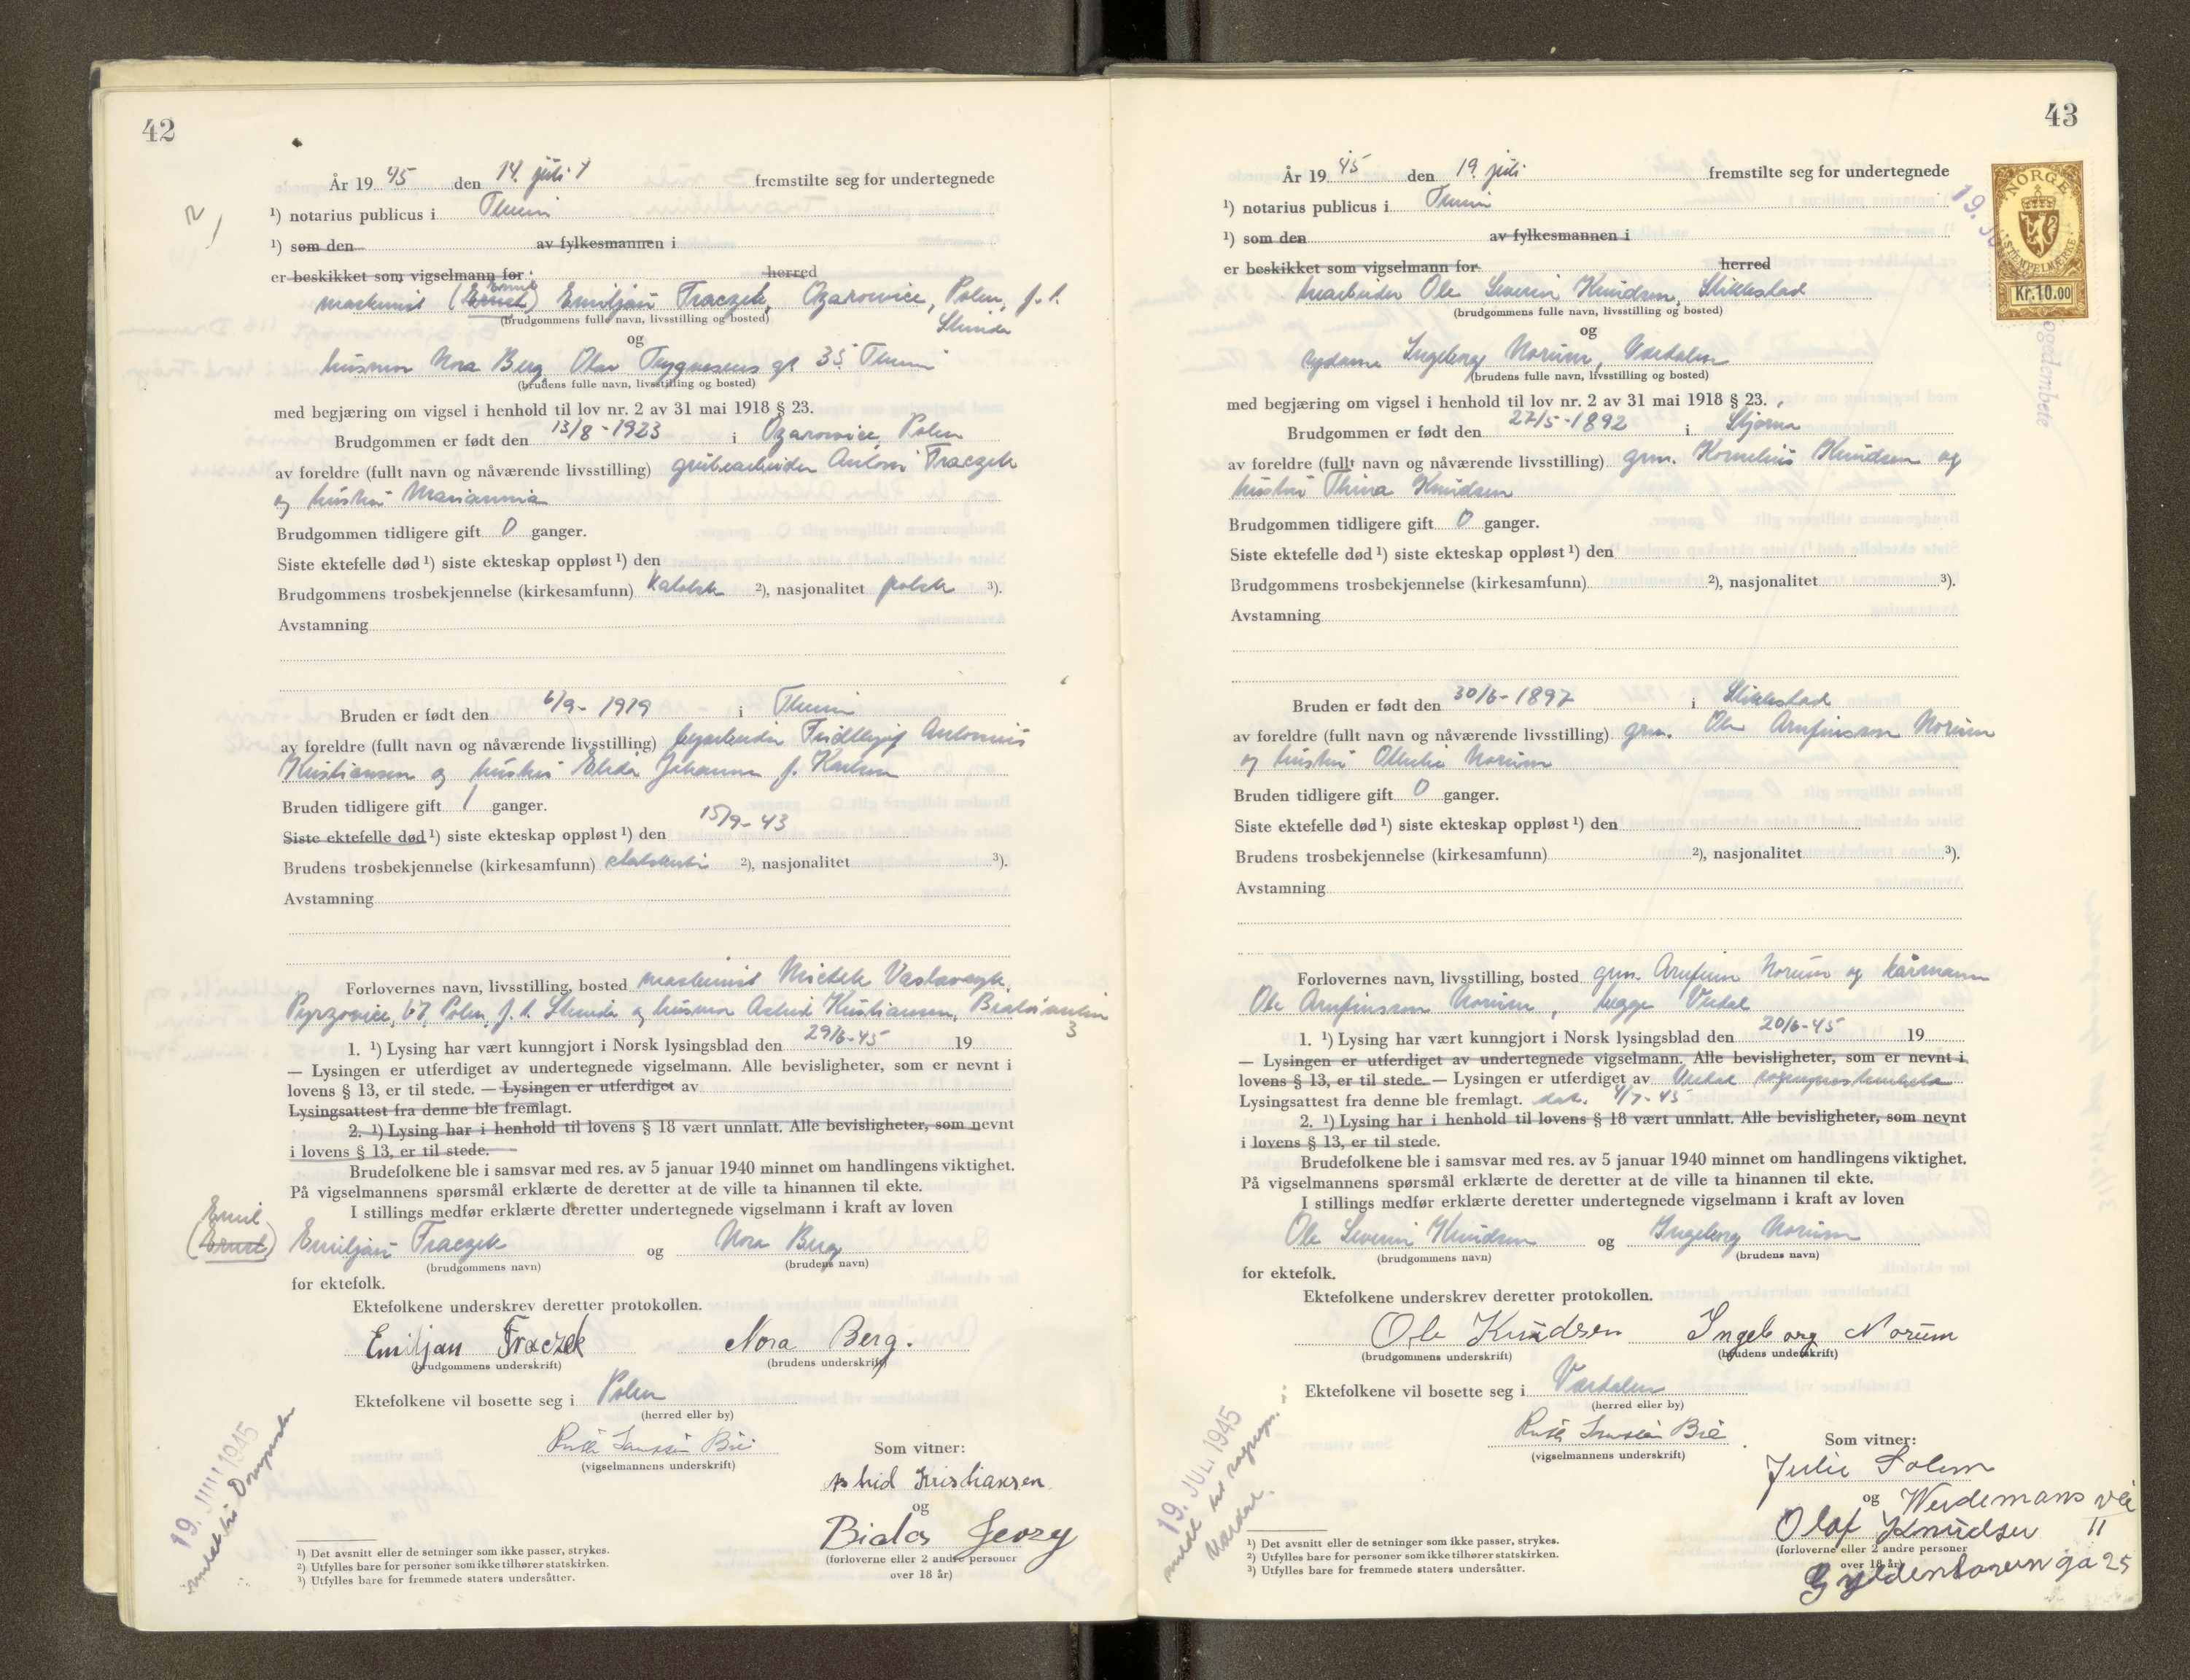 42
År 19 45 den 14. juli fremstilte seg for undertegnede
¹) notarius publicus i
¹) som den av fylkesmannen i
er beskikket som vigselmann for herred
maskinist (Emil) Emiljan Traczek, Ozarowice, Polen, f. t.
(brudgommens fulle navn, livsstilling og bosted)
og
husmor Nora Berg, Olav Trygvasens gt 35
(brudens fulle navn, livsstilling og bosted)
med begjæring om vigsel i henhold til lov nr. 2 av 31 mai 1918 § 23.
Brudgommen er født den 13/8-1923 i Ozarowice, Polen
av foreldre (fullt navn og nåværende livsstilling) grubearbeider Antoni Traczek
og hustru Marianna
Brudgommen tidligere gift 0 ganger.
Siste ektefelle død ¹) siste ekteskap oppløst ¹) den
Brudgommens trosbekjennelse (kirkesamfunn) katolsk ²), nasjonalitet polsk ³).
Avstamning
Bruden er født den 6/9-1919 i
av foreldre (fullt navn og nåværende livsstilling) Fridthjof Antonius
Kristiansen og hustru Johanna f. Karlsen
Bruden tidligere gift 1 ganger.
Siste ektefelle død ¹) siste ekteskap oppløst ¹) den 15/9-43
Brudens trosbekjennelse (kirkesamfunn) statskirke ²), nasjonalitet ³).
Avstamning
Forlovernes navn, livsstilling, bosted maskinist
67, Polen, f. t. og husmor Astrid Kristiansen,
3
1. ¹) Lysing har vært kunngjort i Norsk lysingsblad den 29/6-45 19
— Lysingen er utferdiget av undertegnede vigselmann. Alle bevisligheter, som er nevnt i
lovens § 13, er til stede. — Lysingen er utferdiget av
Lysingsattest fra denne ble fremlagt.
2. ¹) Lysing har i henhold til lovens § 18 vært unnlatt. Alle bevisligheter, som nevnt
i lovens § 13, er til stede.
Brudefolkene ble i samsvar med res. av 5 januar 1940 minnet om handlingens viktighet.
På vigselmannens spørsmål erklærte de deretter at de ville ta hinannen til ekte.
I stillings medfør erklærte deretter undertegnede vigselmann i kraft av loven
Emil
(Ernst) Emiljan Traczek og Nora Berg
(brudgommens navn) (brudens navn)
for ektefolk.
Ektefolkene underskrev deretter protokollen.
Emiljan Traczek Nora Berg.
(brudgommens underskrift) (brudens underskrift)
Ektefolkene vil bosette seg i Polen
(herred eller by)
(vigselmannens underskrift)
Som vitner:
Astrid Kristiansen
og
Bialas Jerzy
(forloverne eller 2 andre personer
over 18 år)
19. JULI 1945
¹) Det avsnitt eller de setninger som ikke passer, strykes.
²) Utfylles bare for personer som ikke tilhører statskirken.
³) Utfylles bare for fremmede staters undersåtter.
43
NORGE
STEMPELMERKE
Kr.10.00
År 19 45 den 19. juli fremstilte seg for undertegnede
¹) notarius publicus i
¹) som den av fylkesmannen i
er beskikket som vigselmann for herred
Ole Severin Knudsen, Stiklestad
(brudgommens fulle navn, livsstilling og bosted)
og
sydame Ingeborg Norum, Værdalen
(brudens fulle navn, livsstilling og bosted)
med begjæring om vigsel i henhold til lov nr. 2 av 31 mai 1918 § 23.
Brudgommen er født den 27/5-1892 i Stjørna
av foreldre (fullt navn og nåværende livsstilling) grm. Kornelius Knudsen og
hustru Thina Knudsen
Brudgommen tidligere gift 0 ganger.
Siste ektefelle død ¹) siste ekteskap oppløst ¹) den
Brudgommens trosbekjennelse (kirkesamfunn) ²), nasjonalitet ³).
Avstamning
Bruden er født den 30/6-1897 i Stiklestad
av foreldre (fullt navn og nåværende livsstilling) grm. Ole Arnfinsson Norum
og hustru Norum
Bruden tidligere gift 0 ganger.
Siste ektefelle død ¹) siste ekteskap oppløst ¹) den
Brudens trosbekjennelse (kirkesamfunn) ²), nasjonalitet ³).
Avstamning
Forlovernes navn, livsstilling, bosted grm. Arnfinn Norum og kårmann
Ole Arnfinsson Norum, begge Verdal
1. ¹) Lysing har vært kunngjort i Norsk lysingsblad den 20/6-45 19
— Lysingen er utferdiget av undertegnede vigselmann. Alle bevisligheter, som er nevnt i
lovens § 13, er til stede. — Lysingen er utferdiget av Verdal
Lysingsattest fra denne ble fremlagt. dat. 4/7-45
2. ¹) Lysing har i henhold til lovens § 18 vært unnlatt. Alle bevisligheter, som nevnt
i lovens § 13, er til stede.
Brudefolkene ble i samsvar med res. av 5 januar 1940 minnet om handlingens viktighet.
På vigselmannens spørsmål erklærte de deretter at de ville ta hinannen til ekte.
I stillings medfør erklærte deretter undertegnede vigselmann i kraft av loven
Ole Severin Knudsen og Ingeborg Norum
(brudgommens navn) (brudens navn)
for ektefolk.
Ektefolkene underskrev deretter protokollen.
Ole Knudsen Ingeborg Norum
(brudgommens underskrift) (brudens underskrift)
Ektefolkene vil bosette seg i Værdalen
(herred eller by)
(vigselmannens underskrift)
Som vitner:
Julie Solem
og Weidemans vei
Olaf Knudsen 11
(forloverne eller 2 andre personer
over 18 år)
19. JULI 1945
¹) Det avsnitt eller de setninger som ikke passer, strykes.
²) Utfylles bare for personer som ikke tilhører statskirken.
³) Utfylles bare for fremmede staters undersåtter.